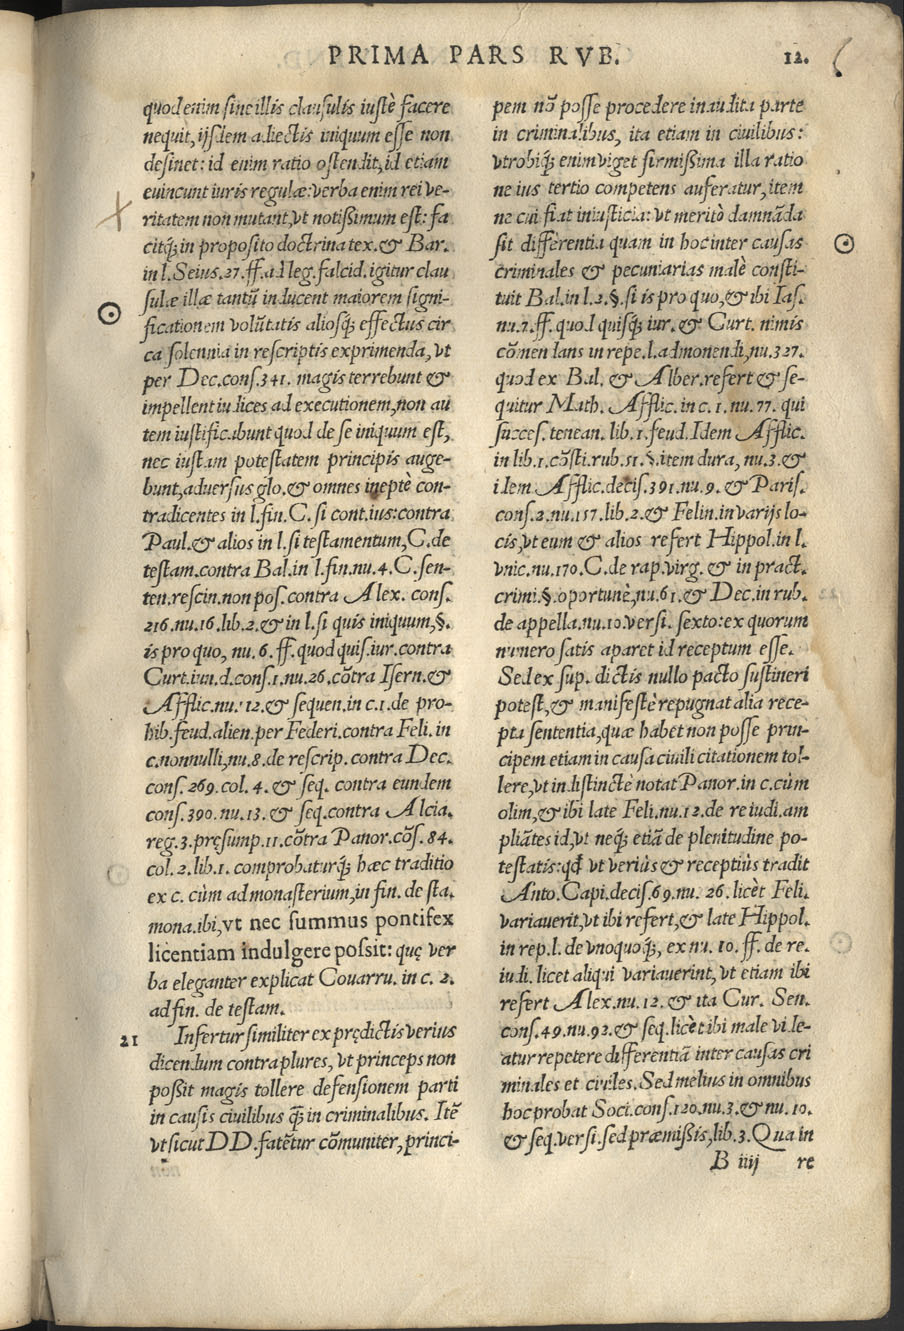 PRIMA PARS RVB. 12.
quod enim sine illis clausulis iustè facere
nequit, ijsdem adiectis iniquum esse non
desinet: id enim ratio ostendit, id etiam
euincunt iuris regulæ: verba enim rei ve-
ritatem non mutant, vt notißimum est: fa
citq́; in proposito doctrina tex. & Bar.
in l. Seius. 27. ff. ad leg. falcid. igitur clau
sulæ illæ tantũ inducent maiorem signi-
ficationem volũtatis aliosq́; effectus cir
ca solennia in rescriptis exprimenda, vt
per Dec. cons. 341. magis terrebunt &
impellent iudices ad executionem, non au
tem iustificabunt quod de se iniquum est,
nec iustam potestatem principis auge-
bunt, aduersus glo. & omnes ineptè con-
tradicentes in l. fin. C. si cont. ius: contra
Paul. & alios in l. si testamentum, C. de
testam. contra Bal. in l. fin. nu. 4. C. sen-
ten. rescin. non pos. contra Alex. cons.
216. nu. 16. lib. 2. & in l. si quis iniquum, §.
is pro quo, nu. 6. ff. quod quis. iur. contra
Curt. iun. d. cons. 1. nu. 26. cõtra Isern. &
Afflic. nu. 12. & sequen. in c. 1. de pro-
hib. feud. alien. per Federi. contra Feli. in
c. nonnulli, nu. 8. de rescrip. contra Dec.
cons. 269. col. 4. & seq. contra eundem
cons. 390. nu. 13. & seq. contra Alcia.
reg. 3. pręsump. 11. cõtra Panor. cõs. 84.
col. 2. lib. 1. comprobaturq́; hæc traditio
ex c. cùm ad monasterium, in fin. de sta.
mona. ibi, vt nec summus pontifex
licentiam indulgere possit: quę ver
ba eleganter explicat Couarru. in c. 2.
ad fin. de testam.
21 Infertur similiter ex prędictis verius
dicendum contra plures, vt princeps non
poßit magis tollere defensionem parti
in causis ciuilibus q̃; in criminalibus. Itẽ
vt sicut DD. fatẽtur cõmuniter, princi-
pem nõ posse procedere inaudita parte
in criminalibus, ita etiam in ciuilibus:
vtrobiq́; enim viget firmißima illa ratio
ne ius tertio competens auferatur, item
ne cui fiat iniusticia: vt meritò damnãda
sit differentia quam in hoc inter causas
criminales & pecuniarias malè consti-
tuit Bal. in l. 2. §. si is pro quo, & ibi Ias.
nu. 7. ff. quod quisq́; iur. & Curt. nimis
cõmendans in repe. l. admonendi, nu. 327.
quod ex Bal. & Alber. refert & se-
quitur Math. Afflic. in c. 1. nu. 77. qui
succes. tenean. lib. 1. feud. Idem Afflic.
in lib. 1. cõsti. rub. 51. §. item dura, nu. 3. &
idem Afflic. decis. 391. nu. 9. & Paris.
cons. 2. nu. 157. lib. 2. & Felin. in varijs lo-
cis, vt eum & alios refert Hippol. in l.
vnic. nu. 170. C. de rap. virg. & in pract.
crimi. §. oportunè, nu. 61. & Dec. in rub.
de appella. nu. 10. versi. sexto: ex quorum
numero satis aparet id receptum esse.
Sed ex sup. dictis nullo pacto sustineri
potest, & manifestè repugnat alia rece-
pta sententia, quæ habet non posse prin-
cipem etiam in causa ciuili citationem tol-
lere, vt indistinctè notat Panor. in c. cùm
olim, & ibi late Feli. nu. 12. de re iudi. am
pliãtes id, vt neq́; etiã de plenitudine po-
testatis: qđ vt veriùs & receptiùs tradit
Anto. Capi. decis. 69. nu. 26. licèt Feli.
variauerit, vt ibi refert, & late Hippol.
in rep. l. de vnoquoq́;, ex nu. 10. ff. de re.
iudi. licet aliqui variauerint, vt etiam ibi
refert Alex. nu. 12. & ita Cur. Sen.
cons. 49. nu. 92. & seq. licèt ibi male vide-
atur repetere differentiã inter causas cri
minales et ciuiles. Sed melius in omnibus
hoc probat Soci. cons. 120. nu. 3. & nu. 10.
& seq. versi. sed præmißis, lib. 3. Qua in
B iiij re